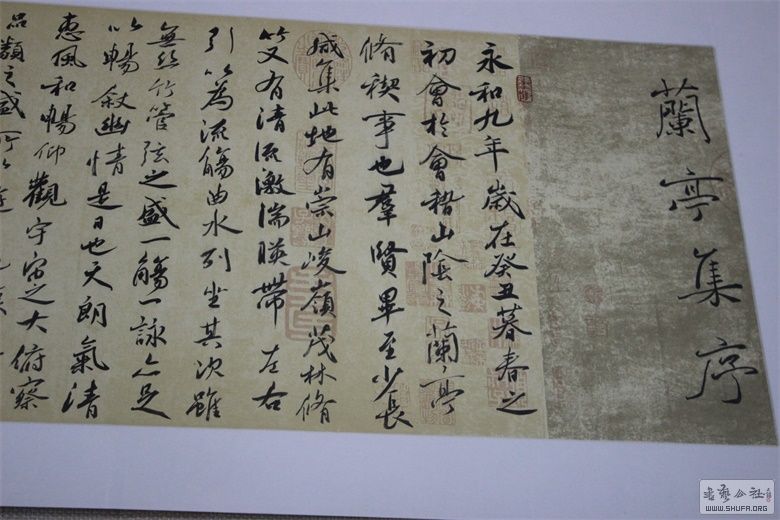 蘭亭集序
永和九年歲在癸丑暮春之
初會於會稽山陰之蘭亭
脩稧事也羣賢畢至少長
咸集此地有崇山峻嶺茂林脩
竹又有清流激湍暎帶左右
引以為流觴曲水列坐其次雖
無絲竹管弦之盛一觴一詠亦足
以暢敘幽情是日也天朗氣清
惠風和暢仰觀宇宙之大俯察
品類之盛所以遊
書藝公社
WWW.SHUFA.ORG